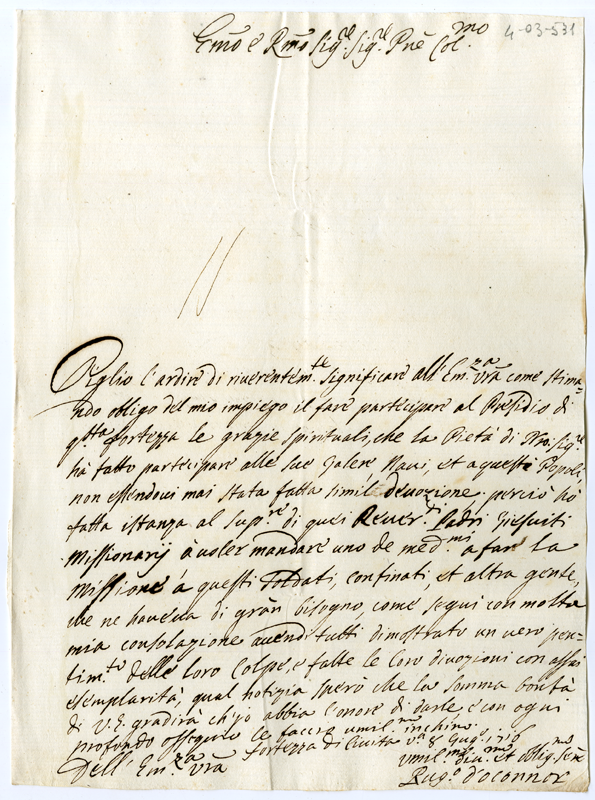 4-03-531
Emo è Rmo Sigre. Sigre. Pne Colmo.
Piglio l'ardire di riuerentemte. significare all' Emza. vra come stima=
ndo obligo del mio impiego il fare partecipare al Presidio di
qsta fortezza le grazie spirituali, che la Pietà di Nro. Sigre
hà fatto partecipare alle sue Galere Naui, et a questi Popoli,
non essendoui mai stata fatta simile deuozione. perciò hò
fatta istanza al Supre. di quei Reuerdi. Padri Giesuiti
Missionarij à uoler mandare uno de medmi. a far la
Missione à questi Soldati, confinati, et altra gente,
che ne haueua di gran bisogno, come seguì con molta
mia consolazione auendo tutti dimostrato un uero pen=
timto. delle loro Colpe, e fatte le loro diuozioni con assai
esemplarità, qual notizia sperò che la somma bontà
di V. E. gradirà ch'io abbia l'onore di darle e con ogni
profondo ossequio le faccio umilmo. inchino.
Dell' Emza. vra fortezza di Ciuita va. 8 Giugo. 1716
Vmilmo. Diumo. et obligmo. Sere
Rugo. d'oconnor